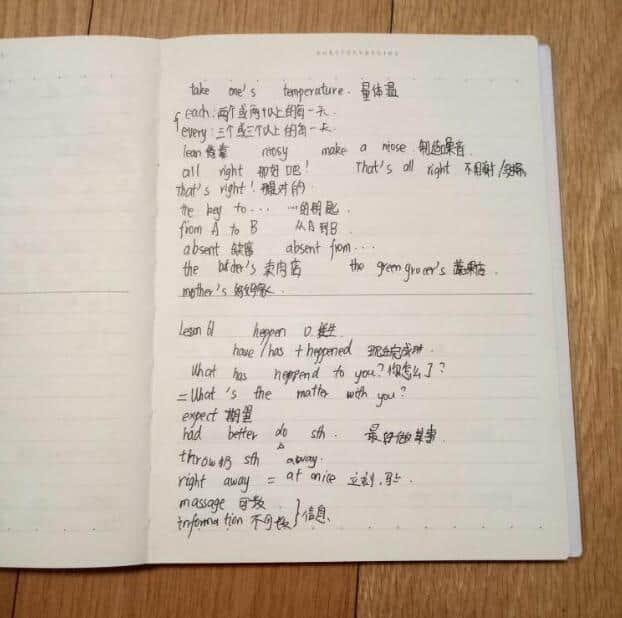 take one's temperature. 量体温
each: 两个或两个以上的每一天.
every: 三个或三个以上的每一天.
lean 倚靠 niosy make a niose 制造噪音
all right 挺好吧! That's all right 不用谢/
That's right! 是对的
the key to... ...的钥匙.
from A to B 从A到B
absent 缺席 absent from...
the butcher's 卖肉店 the green grocer's 蔬果店
mother's 妈妈家.
Lesson 61 heppen 发生
have/has + heppened 现在完成时.
What has heppend to you? 你怎么了?
= What 's the matter with you?
expect 期望
had better do sth. 最好做某事
throw 扔 sth away.
right away = at onice 立刻.马上
massage 可数
information 不可数 }信息